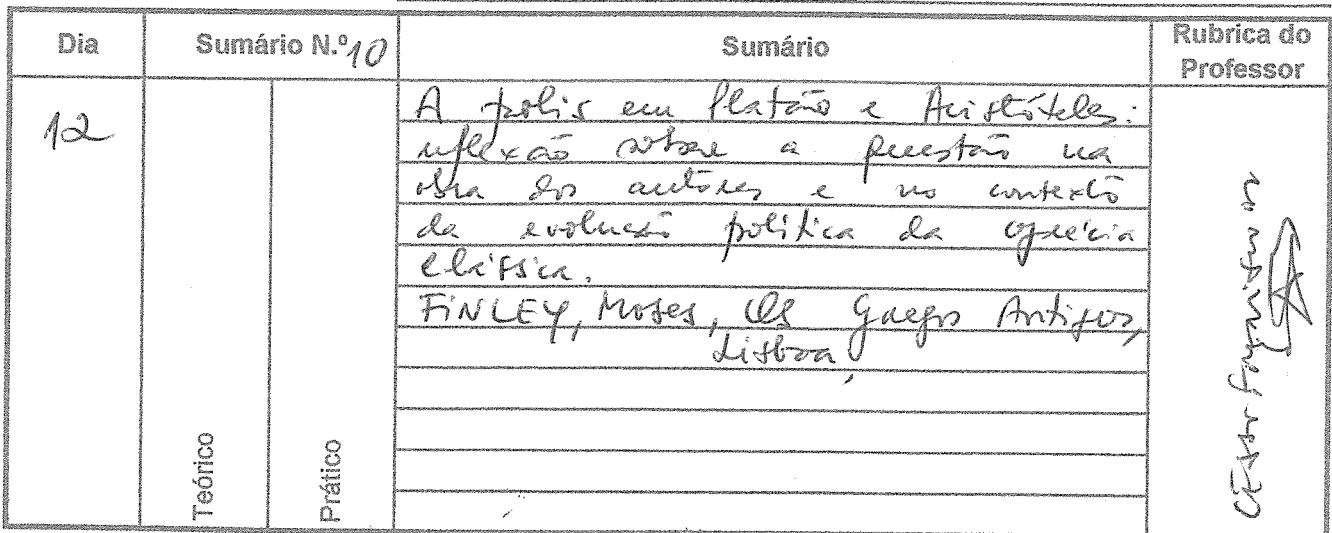 Dia
Sumário N.º 10
Sumário
Rubrica do
Professor
12
A polis em Platão e Aristóteles:
reflexão sobre a questão na
obra dos autores e no contexto
da evolução política da Grécia
clássica.
FINLEY, Moses, Os Gregos Antigos,
Lisboa
Teórico
Prático